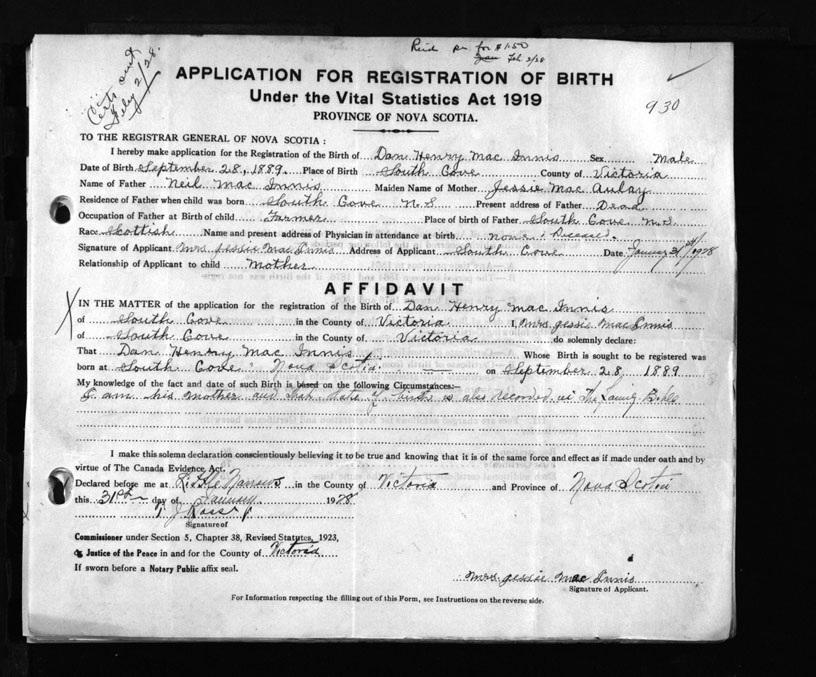 for $1.50
Feb 2/28
Certs out
Feby 2/28.
APPLICATION FOR REGISTRATION OF BIRTH
Under the Vital Statistics Act 1919
930
PROVINCE OF NOVA SCOTIA.
TO THE REGISTRAR GENERAL OF NOVA SCOTIA :
I hereby make application for the Registration of the Birth of Dan Henry Mac Innis Sex Male
Date of Birth September 28, 1889. Place of Birth South Cove County of Victoria
Name of Father Neil Mac Innis Maiden Name of Mother Jessie Mac Aulay
Residence of Father when child was born South Cove N S Present address of Father Dead
Occupation of Father at Birth of child Farmer Place of birth of Father South Cove N.S
Race Scottish Name and present address of Physician in attendance at birth none. Deceased.
Signature of Applicant Mrs Jessie Mac Innis Address of Applicant South Cove Date January 31st/1928
Relationship of Applicant to child Mother
AFFIDAVIT
X
IN THE MATTER of the application for the registration of the Birth of Dan Henry Mac Innis
of South Cove in the County of Victoria I, Mrs Jessie Mac Innis
of South Cove in the County of Victoria do solemnly declare:
That Dan Henry Mac Innis Whose Birth is sought to be registered was
born at South Cove Nova Scotia on September 28, 1889
My knowledge of the fact and date of such Birth is based on the following Circumstances:—
I am his mother and that date of birth is also recorded in The Family Bible
I make this solemn declaration conscientiously believing it to be true and knowing that it is of the same force and effect as if made under oath and by
virtue of The Canada Evidence Act.
Declared before me at Little Narrows in the County of Victoria and Province of Nova Scotia
this 31st day of January 1928
J Ross
Signature of
Commissioner under Section 5, Chapter 38, Revised Statutes, 1923,
Justice of the Peace in and for the County of Victoria
If sworn before a Notary Public affix seal.
Mrs Jessie Mac Innis
Signature of Applicant.
For Information respecting the filling out of this Form, see Instructions on the reverse side.